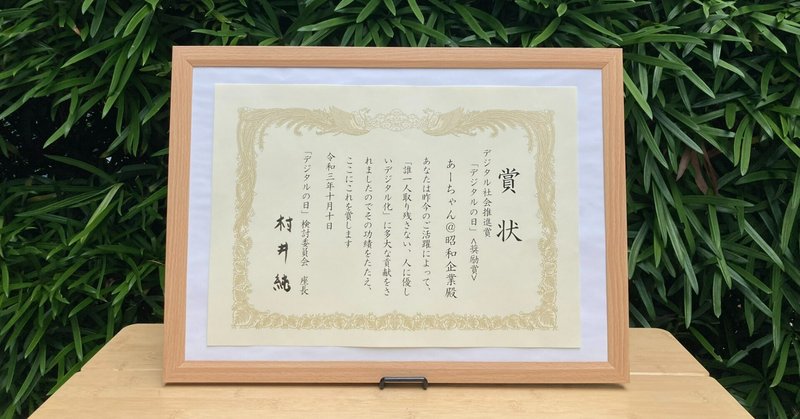 賞状
デジタル社会推進賞
「デジタルの日」<奨励賞>
あーちゃん@昭和企業殿
あなたは昨今のご活躍によって、
「誰一人取り残さない、人に優し
いデジタル化」に多大な貢献をさ
れましたのでその功績をたたえ、
ここにこれを賞します
令和三年十月十日
「デジタルの日」検討委員会 座長
村井純